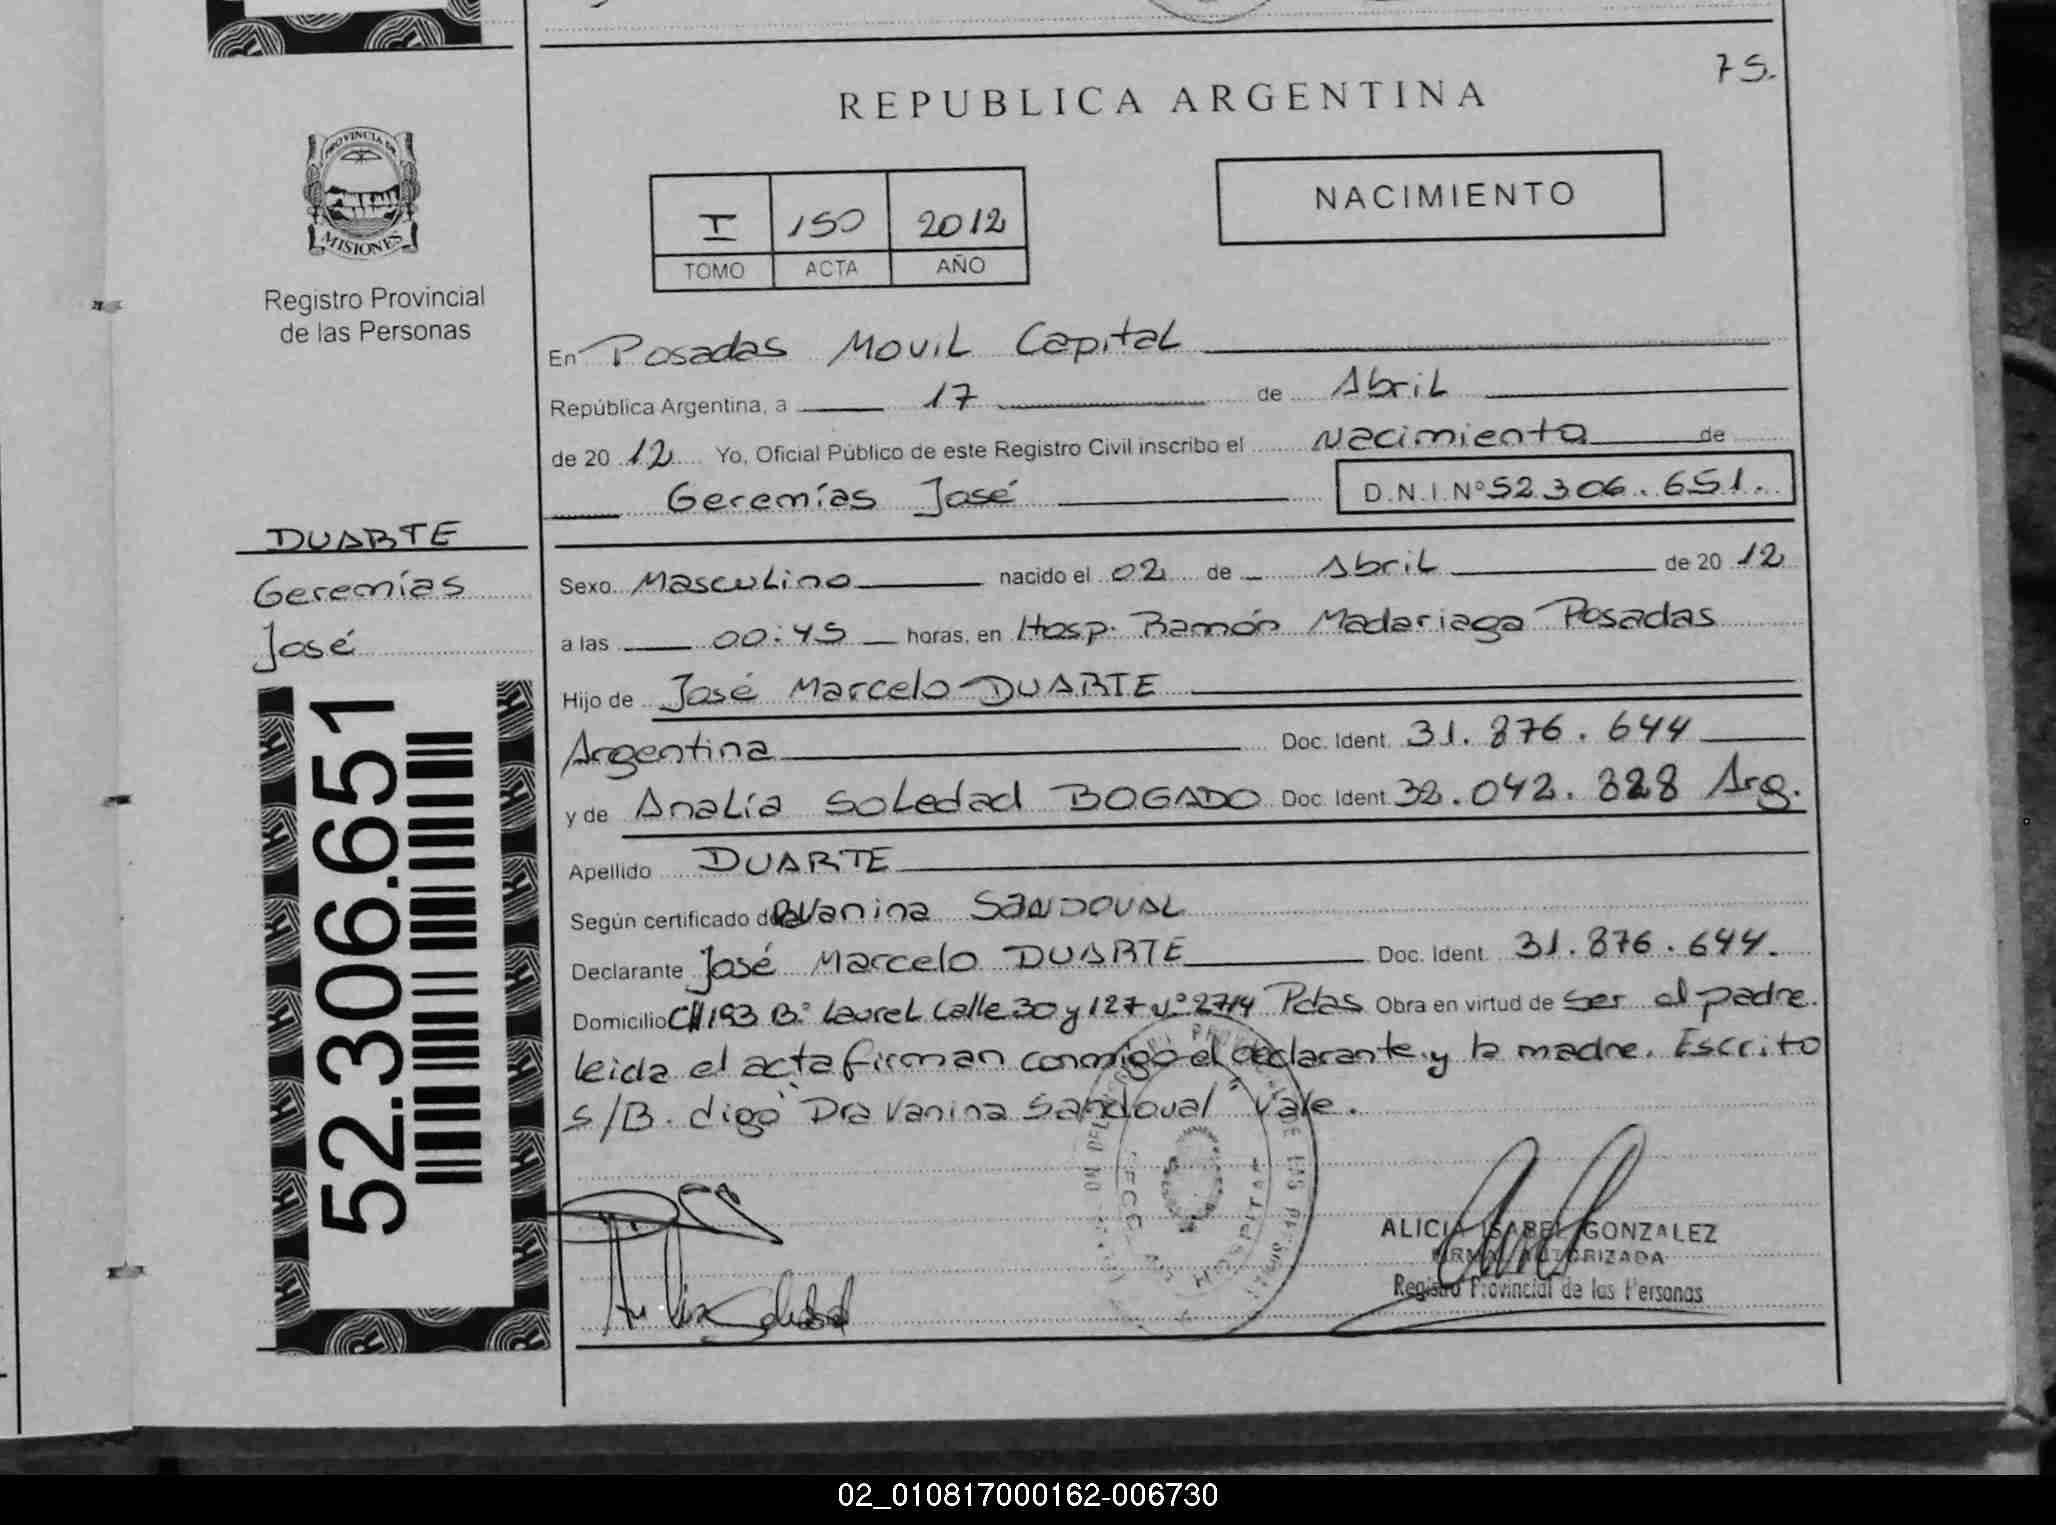 75.
REPUBLICA ARGENTINA
PROVINCIA DE
MISIONES
Registro Provincial
de las Personas
NACIMIENTO
I 150 2012
TOMO ACTA AÑO
En Posadas Movil Capital
República Argentina, a 17 de Abril
de 20 12 Yo, Oficial Público de este Registro Civil inscribo el Nacimiento de
Geremías José D.N.I.Nº 52.306.651.
DUARTE
Geremías
José
52.306.651
Sexo Masculino nacido el 02 de Abril de 20 12
a las 00:45 horas, en Hosp. Ramón Madariaga Posadas
Hijo de José Marcelo DUARTE
Argentina Doc. Ident. 31.876.644
y de Analía Soledad BOGADO Doc. Ident. 32.042.828 Arg.
Apellido DUARTE
Según certificado de Vanina SANDOVAL
Declarante José Marcelo DUARTE Doc. Ident. 31.876.644.
Domicilio CH 193 Bº Laurel Calle 30 y 127 Nº 2714 Pdas Obra en virtud de ser el padre.
leida el acta firman conmigo el declarante y la madre. Escrito
s/B. digo "Dra Vanina Sandoval" Vale.
HOSPITAL
ALICIA ISABEL GONZALEZ
FIRMA AUTORIZADA
Registro Provincial de las Personas
02_010817000162-006730